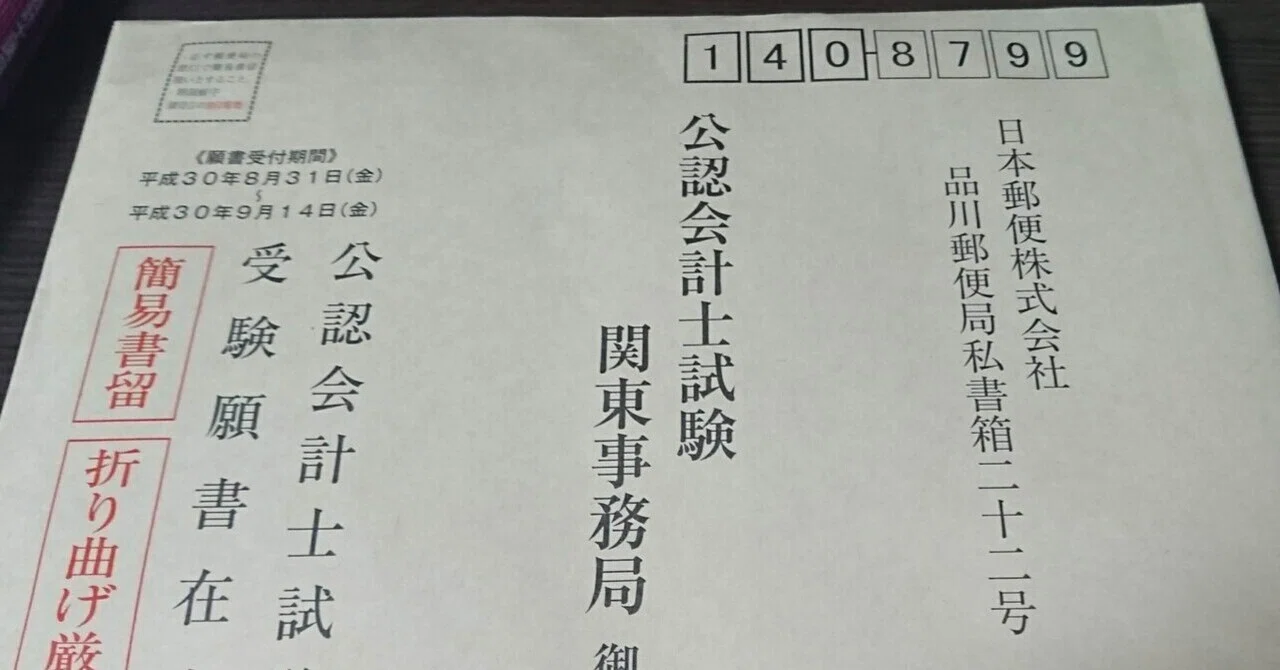 140-8799
日本郵便株式会社
品川郵便局私書箱二十二号
公認会計士試験
関東事務局 御
《願書受付期間》
平成30年8月31日(金)
〜
平成30年9月14日(金)
公認会計士試
受験願書在
簡易書留
折り曲げ厳